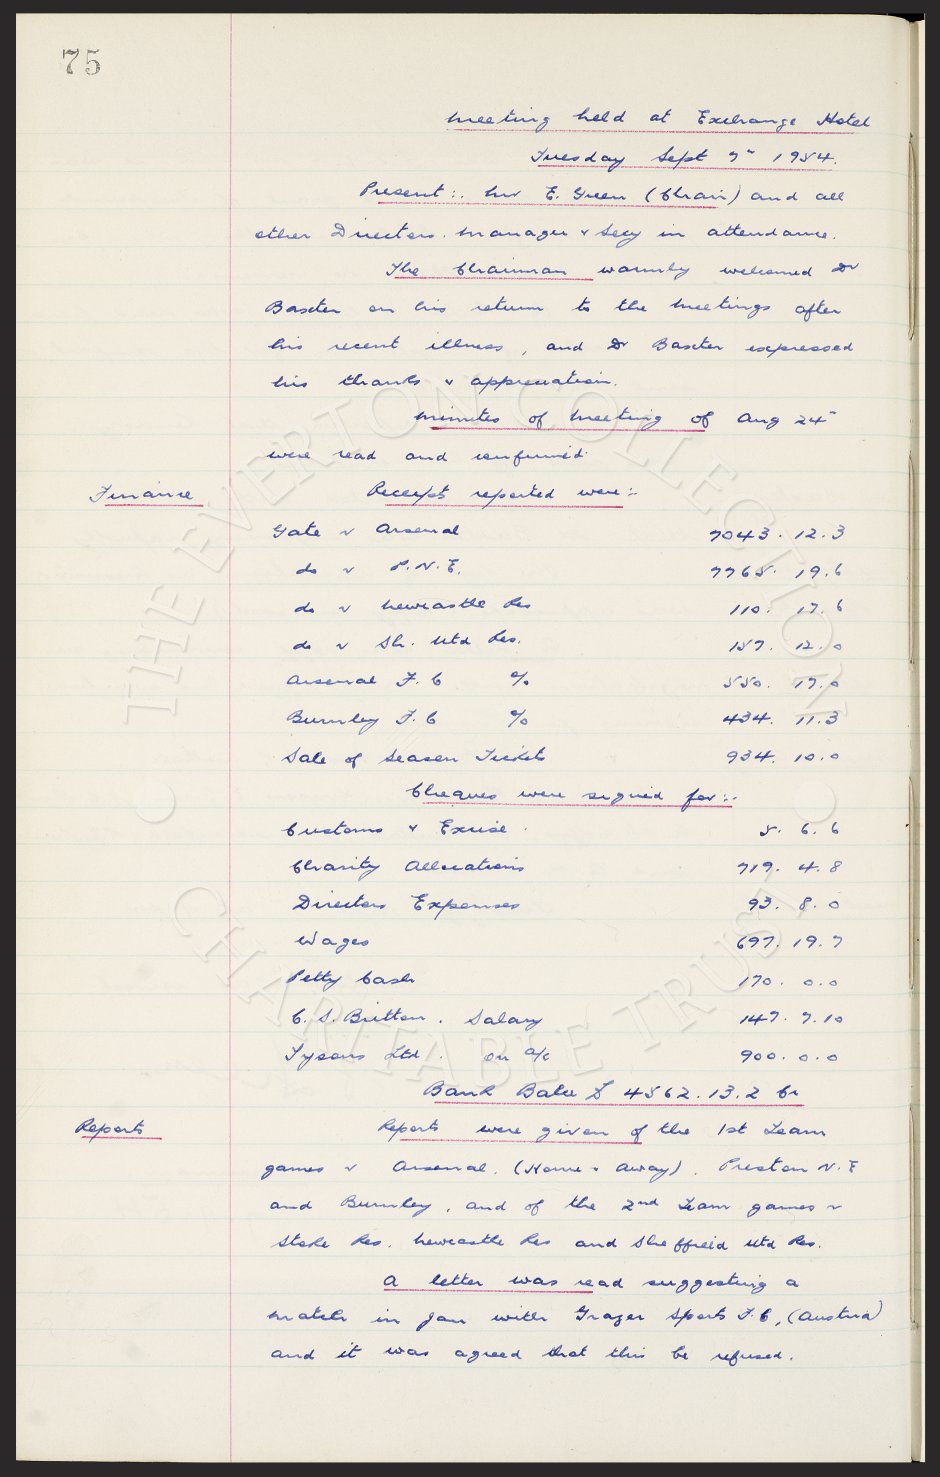 75
Meeting held at Exchange Hotel
Tuesday Sept 7th 1954.
Present:. Mr E. Green (Chair) and all
other Directors. Manager & Secy in attendance.
The Chairman warmly welcomed Dr
Baxter on his return to the meetings after
his recent illness, and Dr Baxter expressed
his thanks & appreciation.
Minutes of Meeting of Aug 24th
were read and confirmed
Finance Receipts reported were:-
Gate v Arsenal 7043. 12. 3
do v P.N.E. 7765. 19. 6
do v Newcastle Res 110. 17. 6
do v Sh. Utd Res. 157. 12. 0
Arsenal F.C % 550. 17. 0
Burnley F.C % 434. 11. 3
Sale of Season Tickets 934. 10. 0
Cheques were signed for:-
Customs & Excise 5. 6. 6
Charity Allocations 719. 4. 8
Directors Expenses 93. 8. 0
Wages 697. 19. 7
Petty Cash 170. 0. 0
C. S. Britton. Salary 147. 7. 10
Tysons Ltd. on a/c 900. 0. 0
Bank Balce £ 4562. 13. 2 Cr
Reports Reports were given of the 1st Team
games v Arsenal. (Home & Away). Preston N.E
and Burnley, and of the 2nd Team games v
Stoke Res. Newcastle Res and Sheffield Utd Res.
A letter was read suggesting a
match in Jan with Grazer Sports F.C, (Austria)
and it was agreed that this be refused.
THE EVERTON COLLECTION
CHARITABLE TRUST